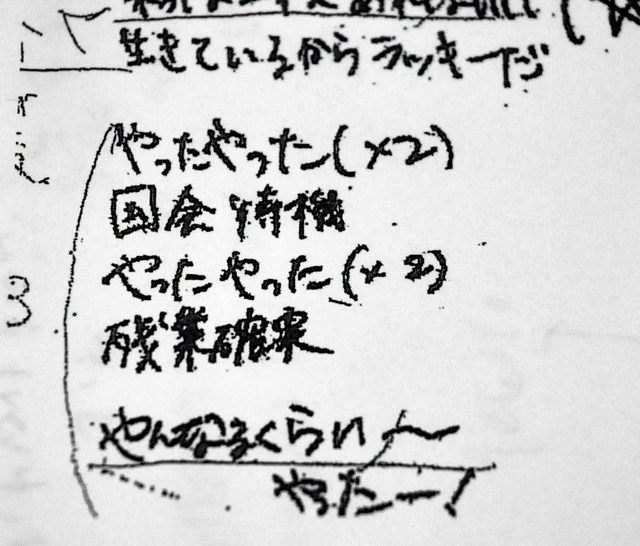 生きているからラッキーだ
やったやった(×2)
国会待機
3
やったやった(×2)
残業確実
やんなるくらい〜
やったー!